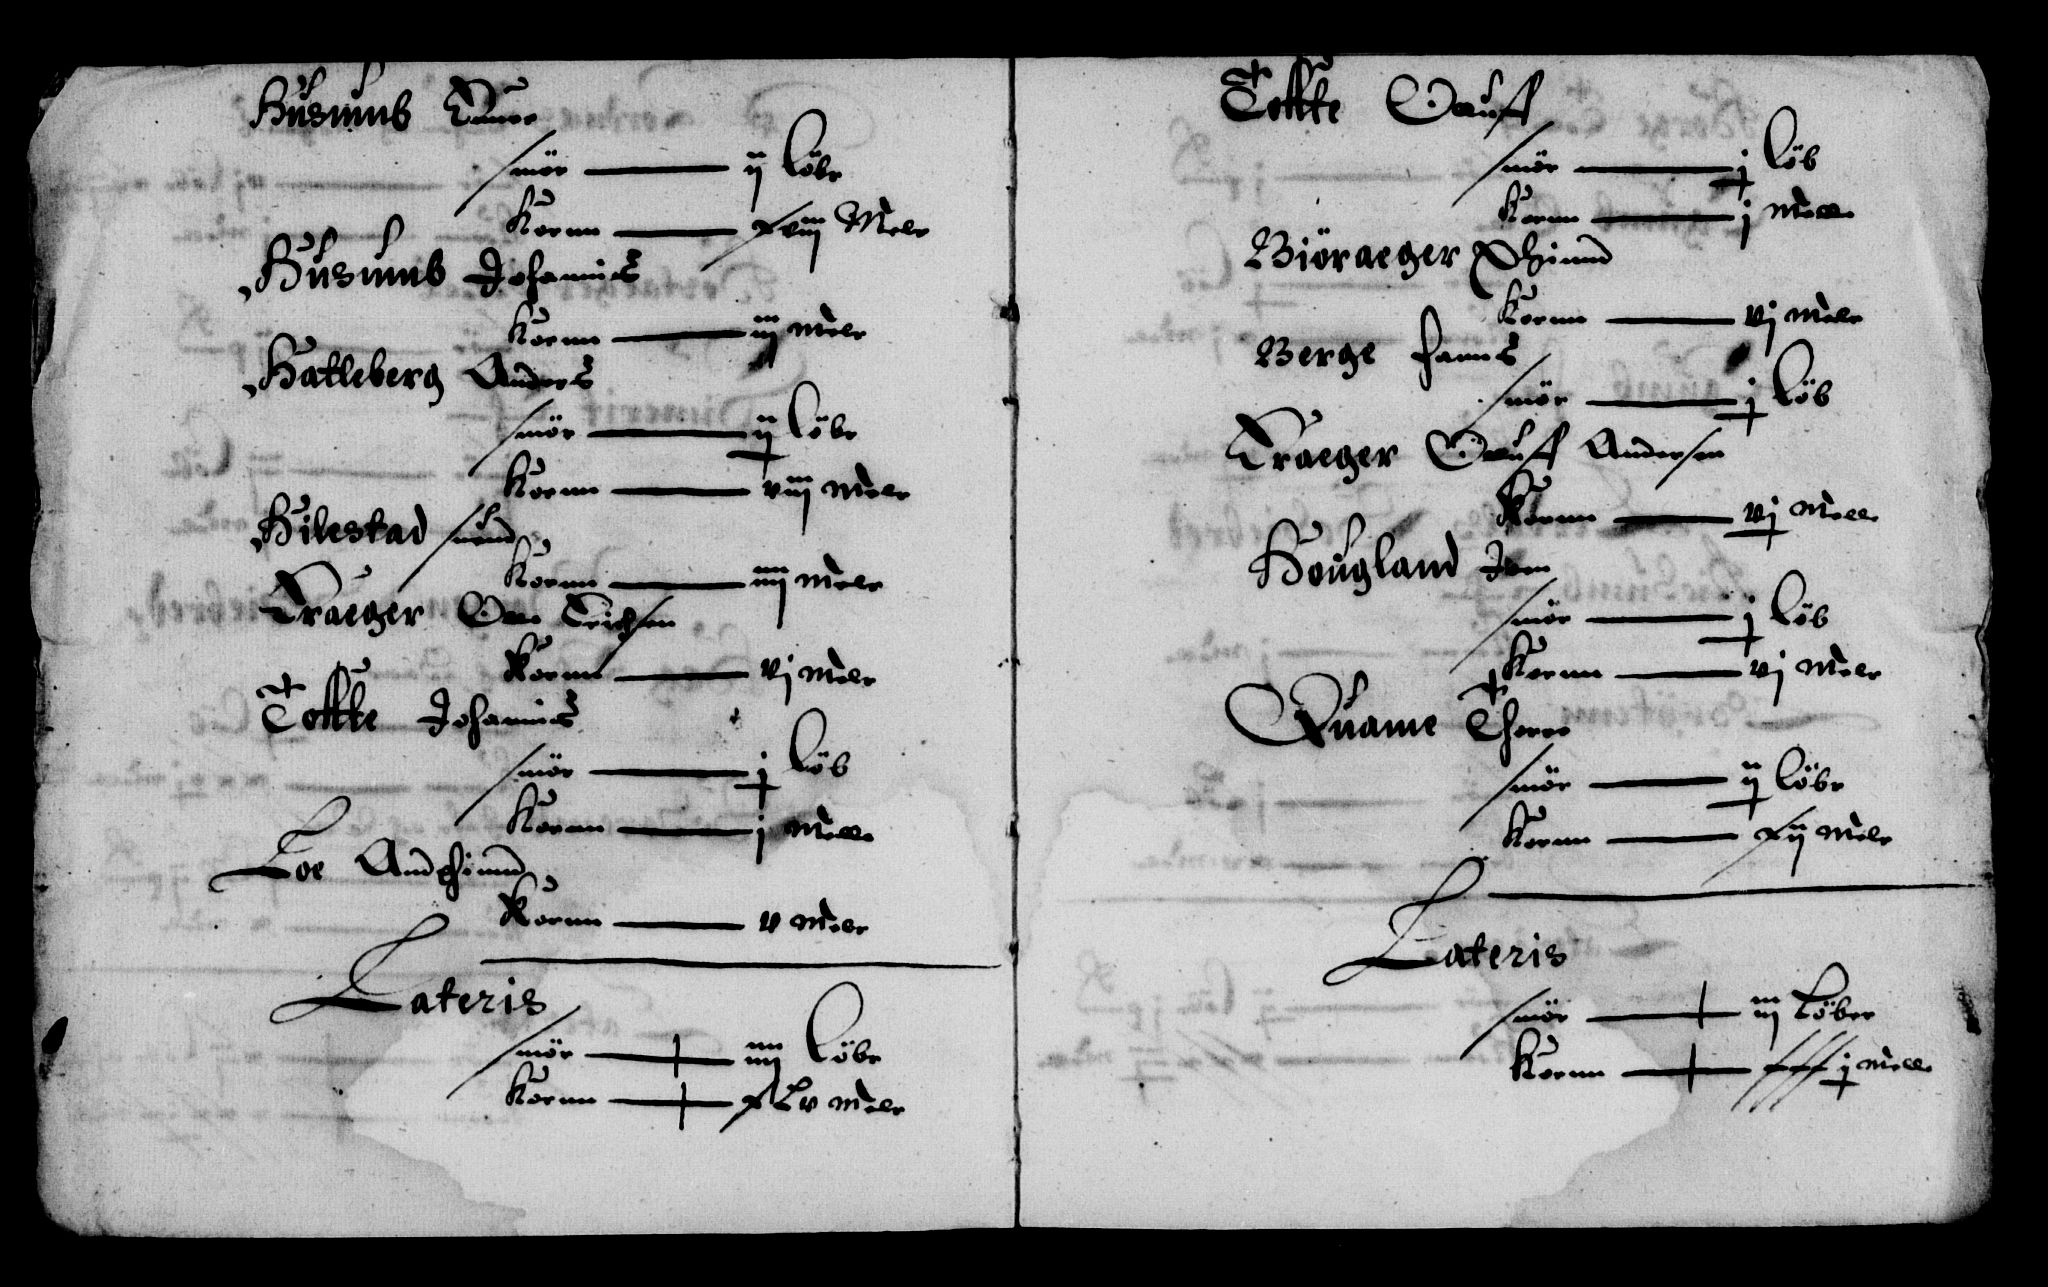 Husumb
smör ij löbr
Kornn xviij Melr
Husumb Johannis
Kornn iij melr
Hatleberg Anders
smör ij löbr
Kornn viij melr
Hilestad suend
Kornn iiij melr
Traeger
Kornn vj melr
Tokke Johannis
smör j löb
Kornn j melle
Loe
Kornn v melr
Lateris
smör iiij löbr
Kornn xLv melr
Tokke Oluff
smör j löb
Kornn j melle
Biöraeger
Kornn vj melr
Berge hanns
smör j löb
Traeger Oluff Andersen
Kornn vj melle
Hougland Iver
smör j löb
Kornn vj melr
Quame
smör ij löbr
Kornn xij melr
Lateris
smör iij Löber
Kornn xxxj melle